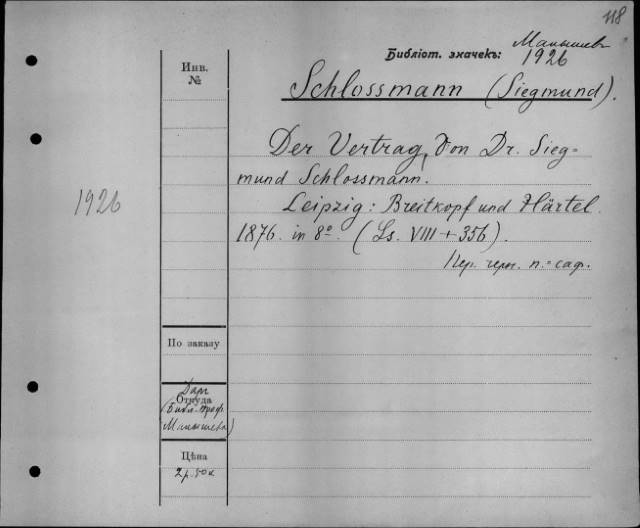 118
Малышев
Библіот. значекъ: 1926
Инв. №
Schlossmann (Siegmund).
Der Vertrag, Von Dr. Sieg=
mund Schlossmann.
1926
Leipzig: Breitkopf und Härtel.
1876. in 8º. (Ss. VIII + 356).
Пер. черн. п.=саф.
По заказу
Откуда
Даръ
(Библ. проф.
Малышева)
Цѣна
2 р. 50 к